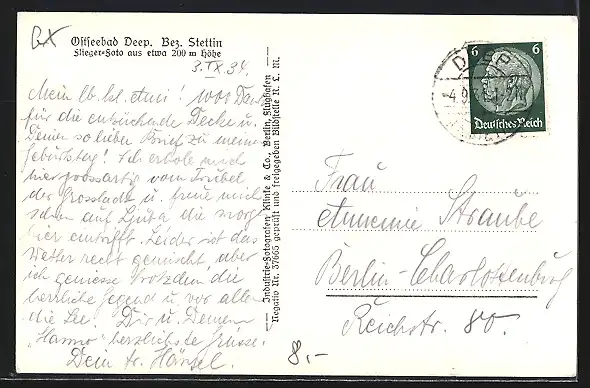 Ostseebad Deep. Bez. Stettin
Flieger-Foto aus etwa 200 m Höhe
3.IX.34.
Mein lb. kl. Anni! 1000 Dank
für die entzückende Decke u.
Deinen so lieben Brief zu meinem
Geburtstag! Ich erhole mich
hier grossartig vom Trubel
der Grosstadt u. freue mich
schon auf die morgen
hier eintrifft. Leider ist das
Wetter recht gemischt, aber
ich geniesse trotzdem die
herrliche Gegend u. vor allem
die See. Dir u. Deinem
"Hanno" herzlichste Grüsse.
Dein tr. Hänsel.
Industrie-Fotografen Klinke & Co., Berlin, Flughafen
Negativ Nr. 37665 geprüft und freigegeben Bildstelle R. L. M.
6 6
Deutsches Reich
4.9.
Frau
Annemie Straube
Berlin-Charlottenburg
Reichstr. 80.
8,-